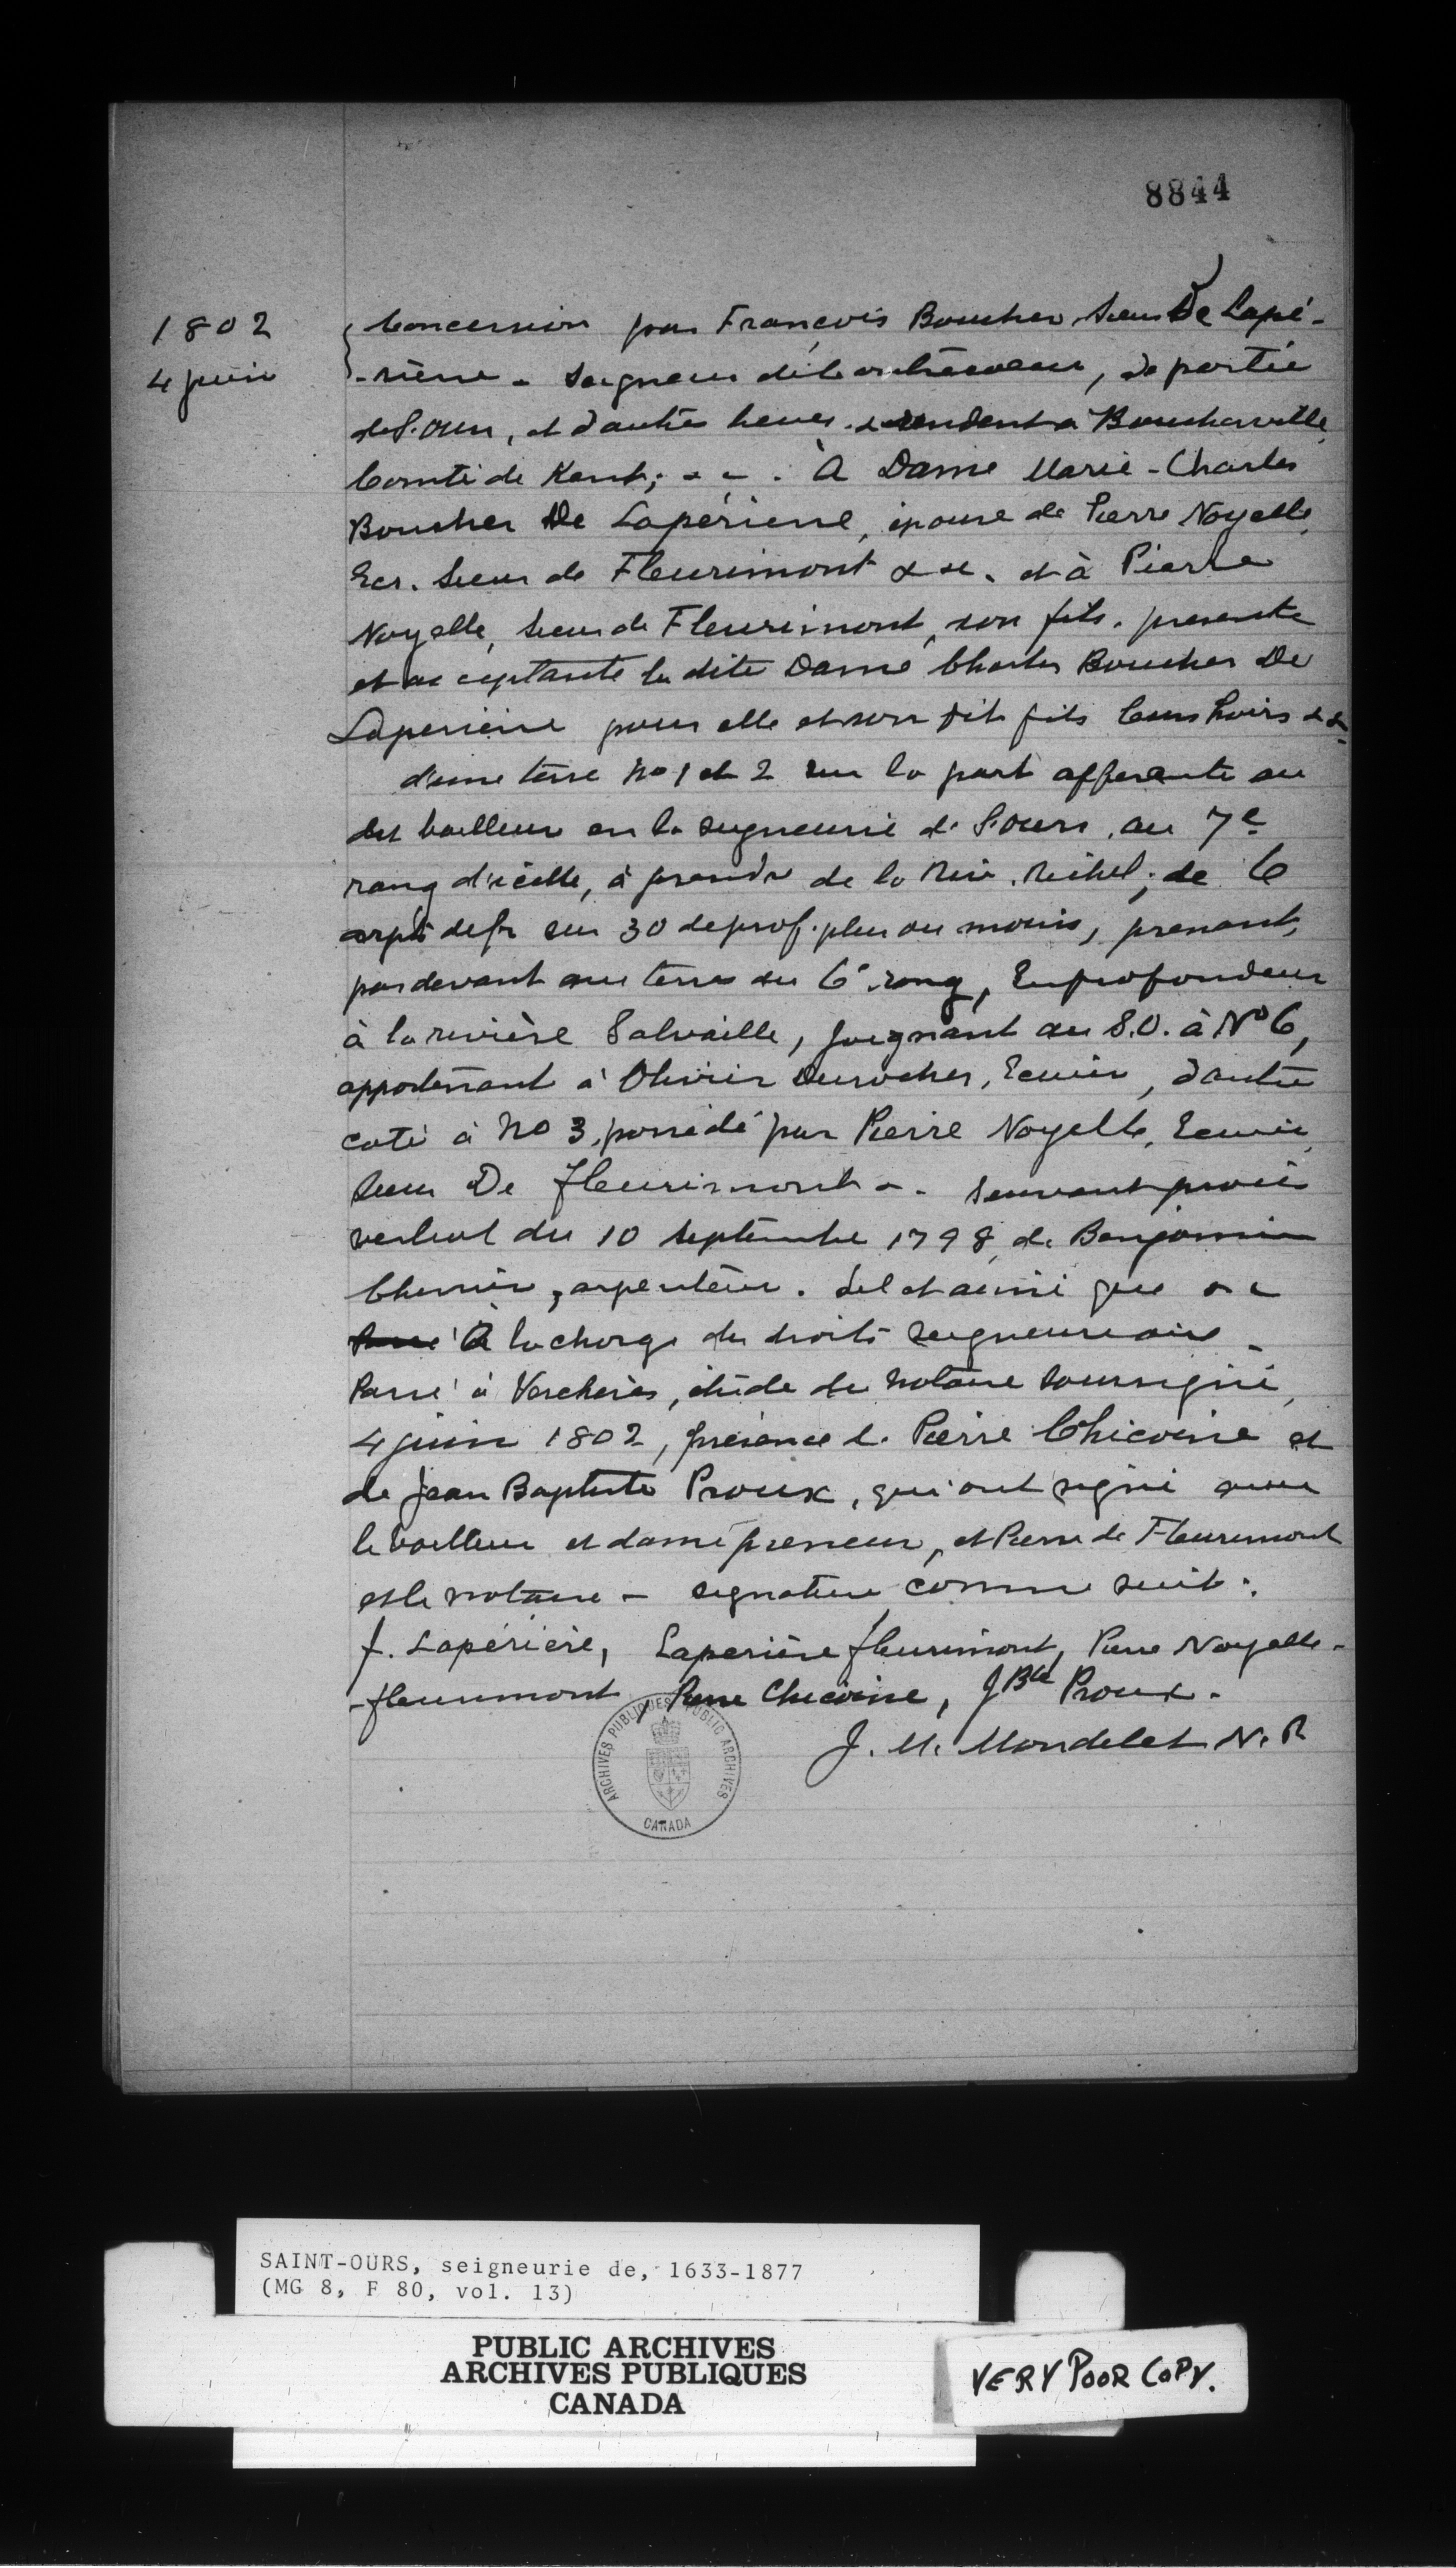 8844
1802
4 juin
Concession par François Boucher Sieur De Lapé-
-rière - Seigneur de Contrecoeur, de partie
de S. Ours, et d'autres lieux, résident à Boucherville,
Comté de Kent; &c. À Dame Marie-Charles
Boucher De Lapérière, épouse de Pierre Noyelle,
Ecr. Sieur de Fleurimont &c. et à Pierre
Noyelle, Sieur de Fleurimont, son fils. présente
et acceptante la dite Dame Charles Boucher De
Laperière pour elle et son dit fils leurs hoirs &c
d'une terre No 1 et 2 sur la part afferente au
dit bailleur en la seigneurie de S. Ours, au 7e
rang d'icelle, à prendre de la Riv. Richel; de 6
arpts de fr sur 30 de prof. plus ou moins, prenant,
par devant aux terres du 6e rang, En profondeur
à la rivière Salvaille, joignant au S.O. à No 6,
appartenant à Olivier Durocher, Ecuier, d'autre
coté à No 3, possédé par Pierre Noyelle, Ecuier,
Sieur De Fleurimont &. suivant procès
verbal du 10 Septembre 1798, de Benjamin
Cherrier, arpenteur. Tel et ainsi que &c
À la charge des droits seigneuriaux -
Passé à Verchères, étude du notaire soussigné,
4 juin 1802, présence de Pierre Chicoine et
de Jean Baptiste Proux, qui ont signé avec
le bailleur et dame preneur, et Pierre de Fleurimont
et le notaire - signature comme suit:
f. Lapérière, Laperière fleurimont, Pierre Noyelle-
-fleurimont, Pierre Chicoine, J Bte Proux.
J. M. Mondelet N. P.
ARCHIVES PUBLIQUES PUBLIC ARCHIVES
CANADA
SAINT-OURS, seigneurie de, 1633-1877
(MG 8, F 80, vol. 13)
PUBLIC ARCHIVES
ARCHIVES PUBLIQUES
CANADA
VERY POOR COPY.